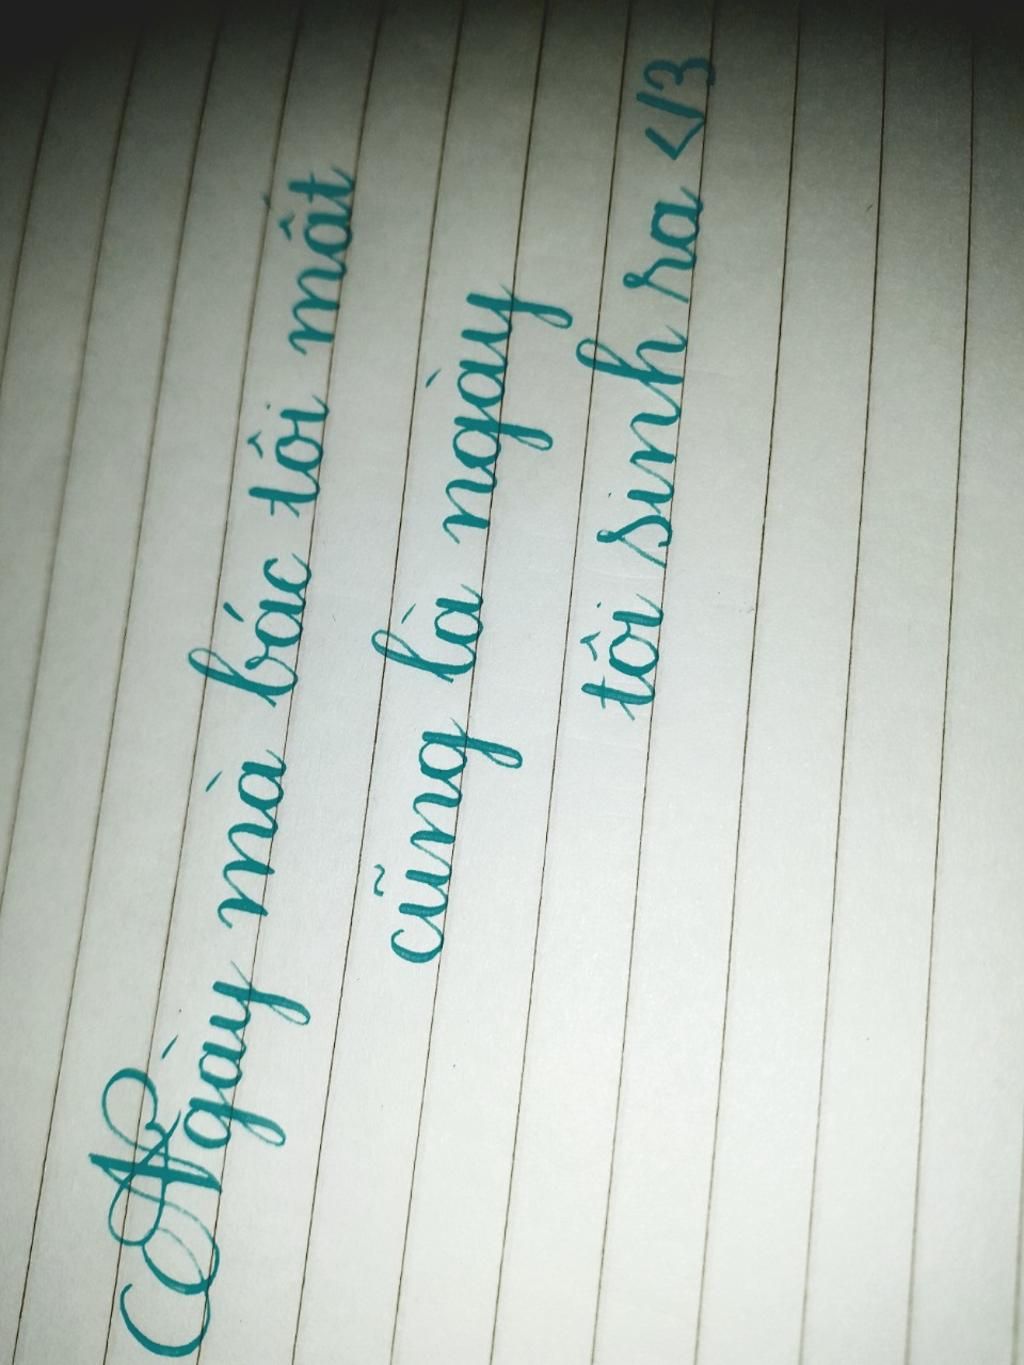 Ngày mà bác tôi mất
cũng là ngày
tôi sinh ra </3